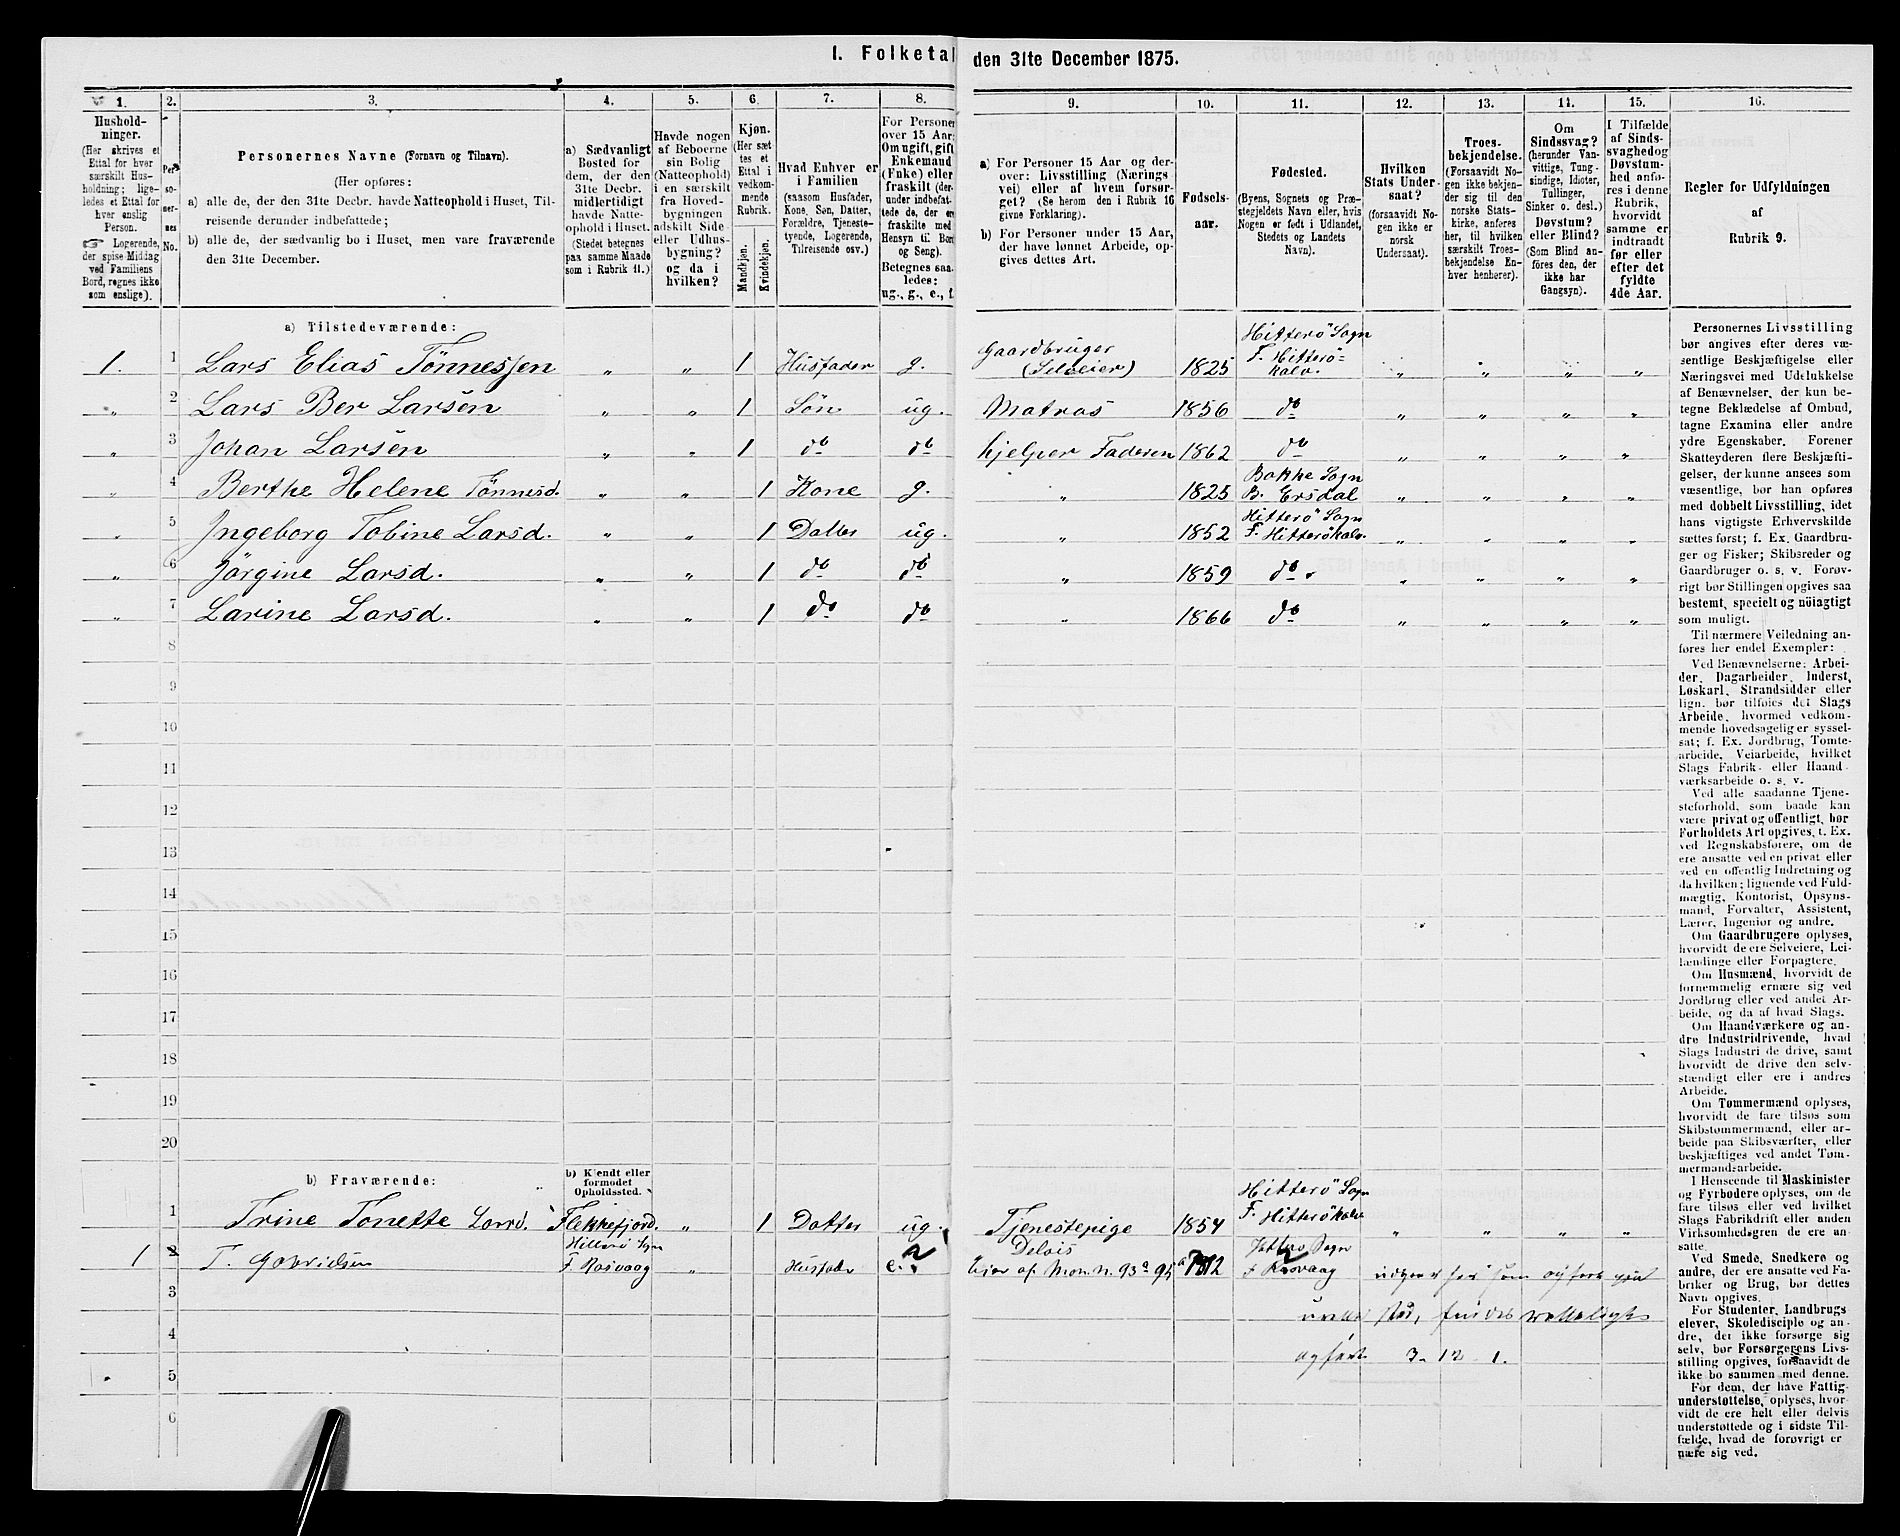 I. Folketal den 31te December 1875.
1. 2. 3. 4. 5. 6. 7. 8. 9. 10. 11. 12. 13. 14. 15. 16.
Hushold-
ninger.
(Her skrives et
Ettal for hver
særskilt Hus-
holdning; lige-
ledes et Ettal for
hver enslig
Person.
☞ Logerende,
der spise Middag
ved Familiens
Bord, regnes ikke
som enslige).
Per-
so-
ner-
nes
No.
Personernes Navne (Fornavn og Tilnavn).
(Her opføres:
a) alle de, der den 31te Decbr. havde Natteophold i Huset, Til-
reisende derunder indbefattede;
b) alle de, der sædvanlig bo i Huset, men vare fraværende
den 31te December.
a) Sædvanligt
Bosted for
dem, der den
31te Decbr.
midlertidigt
havde Natte-
ophold i Huset.
(Stedet betegnes
paa samme Maade
som i Rubrik 11.)
Havde nogen
af Beboerne
sin Bolig
(Natteophold)
i en særskilt
fra Hoved-
bygningen
adskilt Side
eller Udhus-
bygning?
og da i
hvilken?
Kjøn.
(Her sæt
tes et
Ettal i
vedkom-
mende
Rubrik.
Mandkjøn.
Kvindekjøn.
Hvad Enhver er
i Familien
(saasom Husfader,
Kone, Søn, Datter,
Forældre, Tjeneste-
tyende, Logerende,
Tilreisende osv.)
For Personer
over 15 Aar:
Om ugift, gift
Enkemand
(Enke) eller
fraskilt (der-
under indbefat-
tede de, der ere
fraskilte med
Hensyn til Bord
og Seng).
Betegnes saa-
ledes:
ug., g., e., f.
a) For Personer 15 Aar og der-
over: Livsstilling (Nærings
vei) eller af hvem forsør-
get? (Se herom den i Rubrik 16
givne Forklaring).
b) For Personer under 15 Aar,
der have lønnet Arbeide, op-
gives dettes Art.
Fødsels-
aar.
Fødested.
(Byens, Sognets og Præ-
stegjeldets Navn eller, hvis
Nogen er født i Udlandet,
Stedets og Landets
Navn).
Hvilken
Stats Under-
saat?
(forsaavidt No-
gen ikke er
norsk
Undersaat).
Troes-
bekjendelse.
(Forsaavidt No-
gen ikke bekjen-
der sig til den
norske Stats-
kirke, anføres
her, til hvilken
særskilt Troes-
bekjendelse En-
hver henhører).
Om
Sindssvag?
(herunder Van-
vittige, Tung-
sindige, Idioter,
Tullinger,
Sinker o. desl.)
Døvstum?
eller Blind?
(Som Blind an-
føres den, der
ikke har
Gangsyn).
I Tilfælde
af Sinds-
svaghed og
Døvstum-
hed anfø-
res i denne
Rubrik,
hvorvidt
samme er
indtraadt
før eller
efter det
fyldte
4de Aar.
Regler for Udfyldningen
af
Rubrik 9.
a) Tilstedeværende:
1. 1 Lars Elias Tönnessen „ „ 1 Husfader g. Gaardbruger (Selveier) 1825 Hitterö Sogn F. Hitterö= kalv. „ „ „ „
„ 2 Lars Ber Larsen „ „ 1 Sön ug. Matros 1856 do „ „ „ „
„ 3 Johan Larsen „ „ 1 do do hjelper Faderen 1862 do „ „ „ „
„ 4 Berthe Helene Tönnesd. „ „ 1 Kone g. „ 1825 Bakke Sogn B. Ersdal „ „ „ „
„ 5 Ingeborg Tobine Larsd. „ „ 1 Datter ug. 1852 Hitterö Sogn F. Hitterökalv. „ „ „ „
„ 6 Jörgine Larsd. „ „ 1 do do „ 1859 do „ „ „ „
„ 7 Larine Larsd. „ „ 1 do do „ 1866 do „ „ „ „
8
9
10
11
12
13
14
15
16
17
18
19
20
b) Fraværende:
b) Kjendt eller
formodet
Opholdssted.
1 Trine Tonette Larsd. Flekkefjord. „ 1 Datter ug. Tjenestepige 1854 Hitterö Sogn F. Hitterökalv „ „ „ „
1 2 T. Gabrielsen Hitterö Sogn F. Rasvaag „ Husfader e. 2 Delvis 1812 Hitterö Sogn F Rasvaag
3
4
5
6
3 - 12 - 1.
Personernes Livsstilling
bør angives efter deres væ-
sentlige Beskjæftigelse eller
Næringsvei med Udelukkelse
af Benævnelser, der kun be-
tegne Beklædelse af Ombud,
tagne Examina eller andre
ydre Egenskaber. Forener
Skatteyderen flere Beskjæfti-
gelser, der kunne ansees som
væsentlige, bør han opføres
med dobbelt Livsstilling, idet
hans vigtigste Erhvervskilde
sættes først; f. Ex. Gaardbru-
ger og Fisker; Skibsreder og
Gaardbruger o. s. v. Forøv-
rigt bør Stillingen opgives saa
bestemt, specielt og nöiagtigt
som muligt.
Til nærmere Veiledning an-
føres her endel Exempler:
Ved Benævnelserne: Arbei-
der, Dagarbeider, Inderst,
Løskarl, Strandsidder eller
lign. bør tilføies det Slags
Arbeide, hvormed vedkom-
mende hovedsagelig er syssel-
sat; f. Ex. Jordbrug, Tomte-
arbeide, Veiarbeide, hvilket
Slags Fabrik- eller Haand-
værksarbeide o. s. v.
Ved alle saadanne Tjene-
steforhold, som baade kan
være privat og offentligt, bør
Forholdets Art opgives, t. Ex.
ved Regnskabsførere, om de
ere ansatte ved en privat eller
ved en offentlig Indretning og
da hvilken; lignende ved Fuld-
mægtig, Kontorist, Opsyns-
mand, Forvalter, Assistent,
Lærer, Ingeniør og andre.
Om Gaardbrugere oplyses,
hvorvidt de ere Selveiere, Lei-
lændinge eller Forpagtere.
Om Husmænd, hvorvidt de
fornemmelig ernære sig ved
Jordbrug eller ved andet Ar-
beide, og da af hvad Slags.
Om Haandværkere og an-
dre Industridrivende, hvad
Slags Industri de drive, samt
hvorvidt de drive den selv-
stændigt eller ere i andres
Arbeide.
Om Tømmermænd oplyses,
hvorvidt de fare tilsøs som
Skibstømmermænd, eller ar-
beide paa Skibsværfter, eller
beskjæftiges ved andet Tøm-
mermandsarbeide.
I Henseende til Maskinister
og Fyrbødere oplyses, om de
fare tilsøs eller ved hvilket
Slags Fabrikdrift eller anden
Virksomhedsgren de ere an-
satte.
Ved Smede, Snedkere og
andre, der ere ansatte ved Fa-
briker og Brug, bør dettes
Navn opgives.
For Studenter, Landbrugs
elever, Skoledisciple og an-
dre, der ikke forsørge sig
selv, bør Forsørgerens Livs-
stilling opgives, forsaavidt de
ikke bo sammen med denne.
For dem, der have Fattig-
understøttelse, oplyses, hvor-
vidt de ere helt eller delvis
understøttede og i sidste Til-
fælde, hvad de forøvrigt er-
nære sig ved.